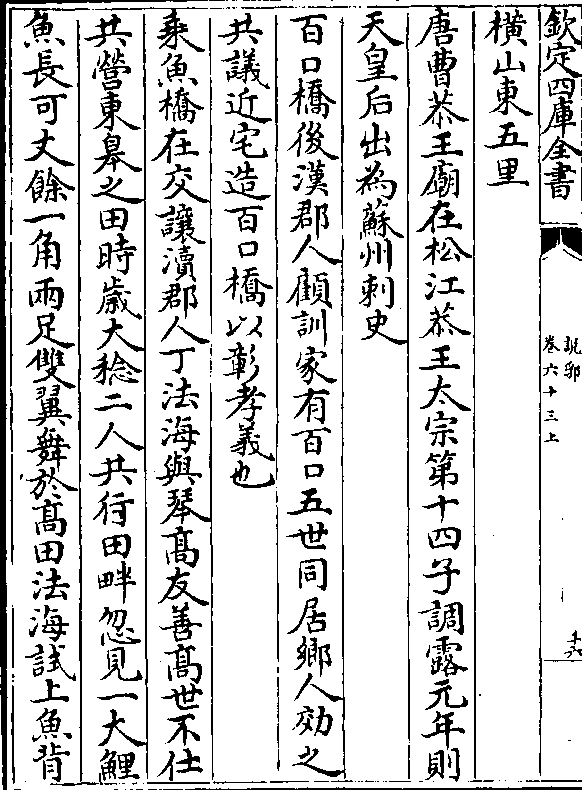 欽定四庫全書
說郛
卷六十三上
橫山東五里
唐曹恭王廟在松江恭王太宗第十四子調露元年則
天皇后出為蘇州刺史
百口橋後漢郡人顧訓家有百口五世同居鄉人効之
共議近宅造百口橋以彰孝義也
乘魚橋在交讓瀆郡人丁法海與琴髙友善髙世不仕
共營東皋之田時歲大稔二人共行田畔忽見一大鯉
魚長可丈餘一角兩足雙翼舞於髙田法海試上魚背